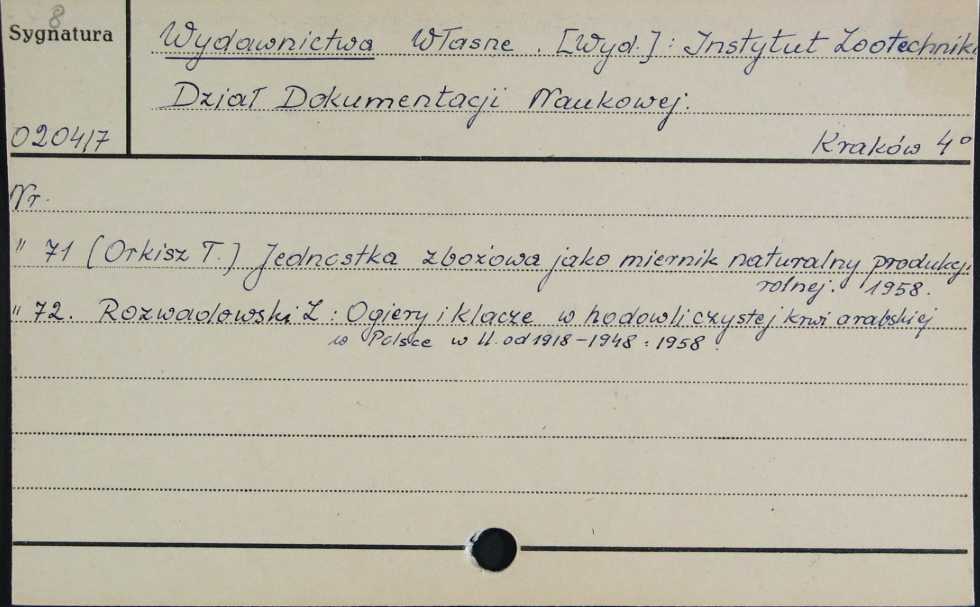 8
Sygnatura
Wydawnictwa Własne. [Wyd.]: Instytut Zootechniki
Dział Dokumentacji Naukowej.
0204/7
Kraków 4°
Nr.
" 71 [Orkisz T.] Jednostka zbożowa jako miernik naturalny produkcji
rolnej. 1958.
" 72. Rozwadowski Z: Ogiery i klacze w hodowli czystej krwi arabskiej
w Polsce w ll. od 1918-1948: 1958.